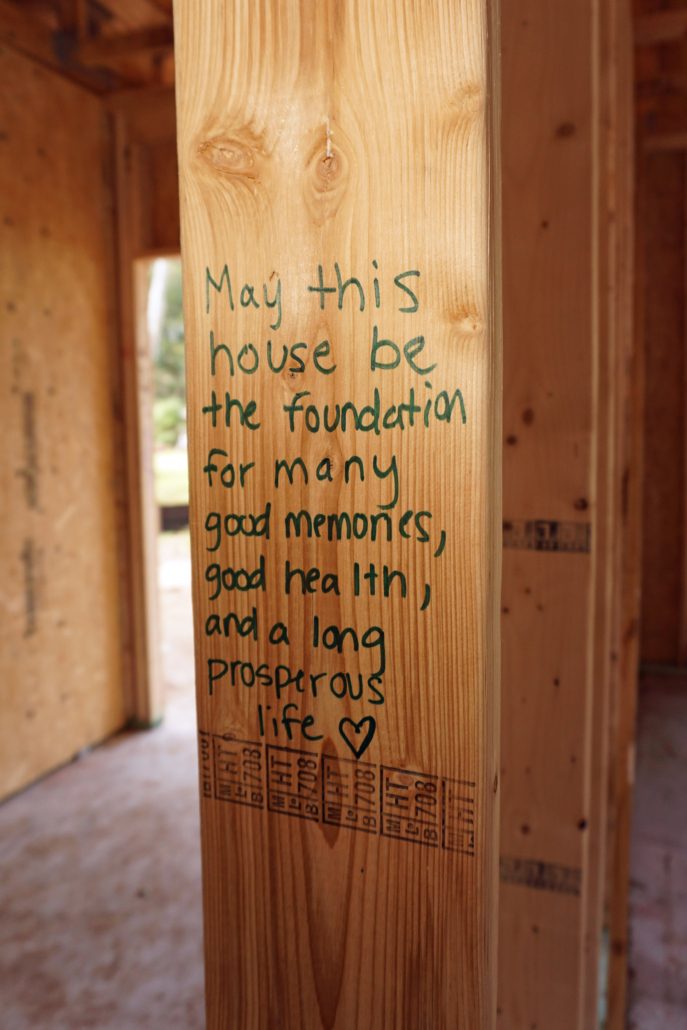 May this
house be
the foundation
for many
good memories,
good health,
and a long
prosperous
life ♡
HT HT HT HT HT
1708 1708 1708 1708